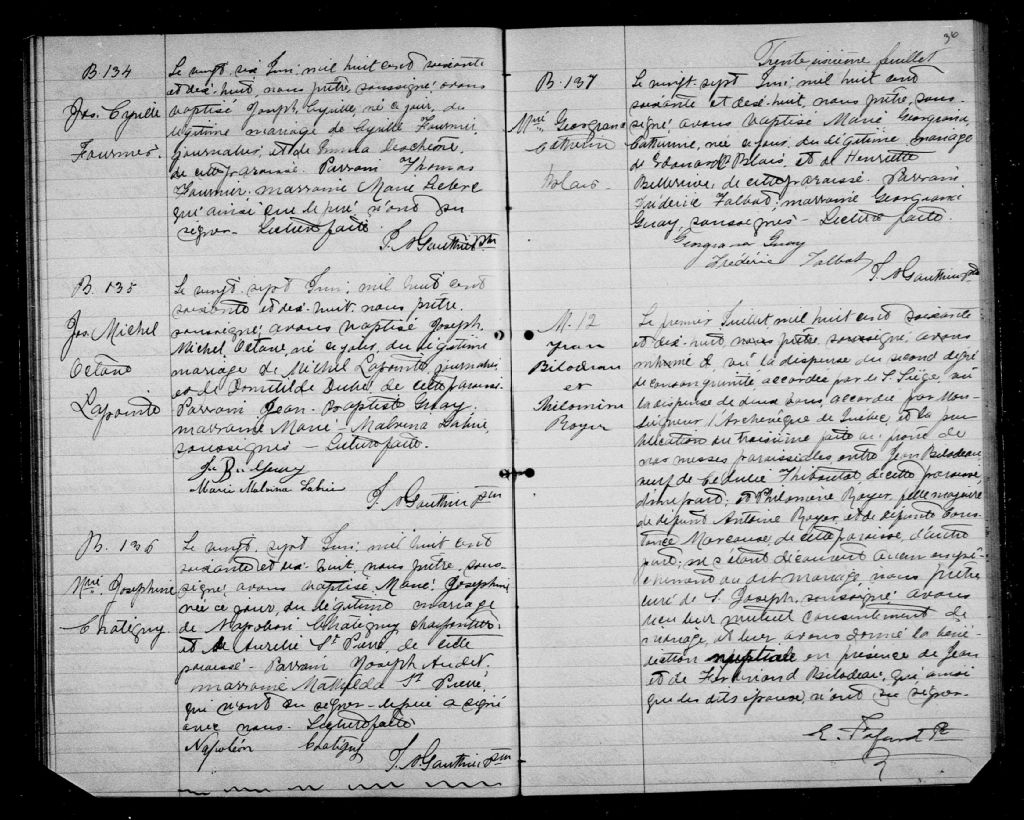 B. 134
Jos. Cyrille
Fournier.
Le vingt six Juin, mil huit cent soixante
et dix-huit, nous prêtre, soussigné, avons
baptisé Joseph, Cyrille, né ce jour, du
légitime mariage de Cyrille Fournier,
journalier, et de Emma
de cette paroisse. Parrain Thomas
Fournier, marraine Marie
qui ainsi que le père n'ont su
signer. Lecture faite.
J. A. Gauthier Ptre
B. 135
Jos. Michel
Octave
Lapointe
Le vingt. sept Juin, mil huit cent
soixante et dix-huit. nous, prêtre,
soussigné, avons baptisé Joseph,
Michel, Octave, né ce jour, du légitime
mariage de Michel Lapointe, journalier,
et de Domitilde Dubé de cette paroisse.
Parrain Jean-Baptiste Guay.
marraine Marie-Malvina Labrie,
soussignés - Lecture faite.
Marie Malvina Labrie
J. A. Gauthier Ptre
B. 136
Mrie. Josephine
Chatigny
Le vingt. sept Juin, mil huit cent
soixante et dix huit, nous prêtre, sous-
signé, avons baptisé, Marie Josephine
née ce jour, du légitime mariage
de Napoléon Chatigny charpentier,
et de Aurelie St Pierre, de cette
paroisse - Parrain Joseph Audet.
marraine Mathilda St Pierre,
qui n'ont su signer - le père a signé
avec nous. Lecture faite
Napoléon Chatigny
J. A. Gauthier Ptre
36
Trente sixième feuillet
B. 137
Mrie. Georgiana
Catherine
Blais
Le vingt. sept Juin, mil huit cent
soixante et dix-huit, nous prêtre, sous-
signé, avons baptisé Marie Georgiana
Catherine, née ce jour, du légitime mariage
de Edouard Blais, et de Henriette
Bellerive, de cette paroisse. Parrain
Frédéric Talbot; marraine Georgiana
Guay, soussignés - Lecture faite.
Georgiana Guay
Frédéric Talbot
J. A. Gauthier Ptre
M. 12
Jean
Bilodeau
et
Philomène
Royer
Le premier Juillet mil huit cent soixante
et dix-huit nous prêtre soussigné, avons
vu la dispense du second degré
de consanguinité, accordée par le S. Siège, vu
la dispense de deux bans, accordée par Mon-
seigneur l'Archevêque de Québec, et la pu-
blication du troisième faite au prône de
nos messes paroissiales entre Jean Bilodeau
veuf de Thiboutot, de cette paroisse,
d'une part; et Philomène Royer, fille majeure
de défunt Antoine Royer, et de défunte Cons-
tance Marcoux, de cette paroisse, d'autre
part; ne s'étant découvert aucun empê-
chement au dit mariage, nous prêtre
curé de S. Joseph, soussigné avons
reçu leur mutuel consentement de
mariage, et leur avons donné la béné-
diction nuptiale en présence de Jean
et de Ferdinand Bilodeau, qui, ainsi
que les dits époux, n'ont su signer.
E. Fafard Ptre